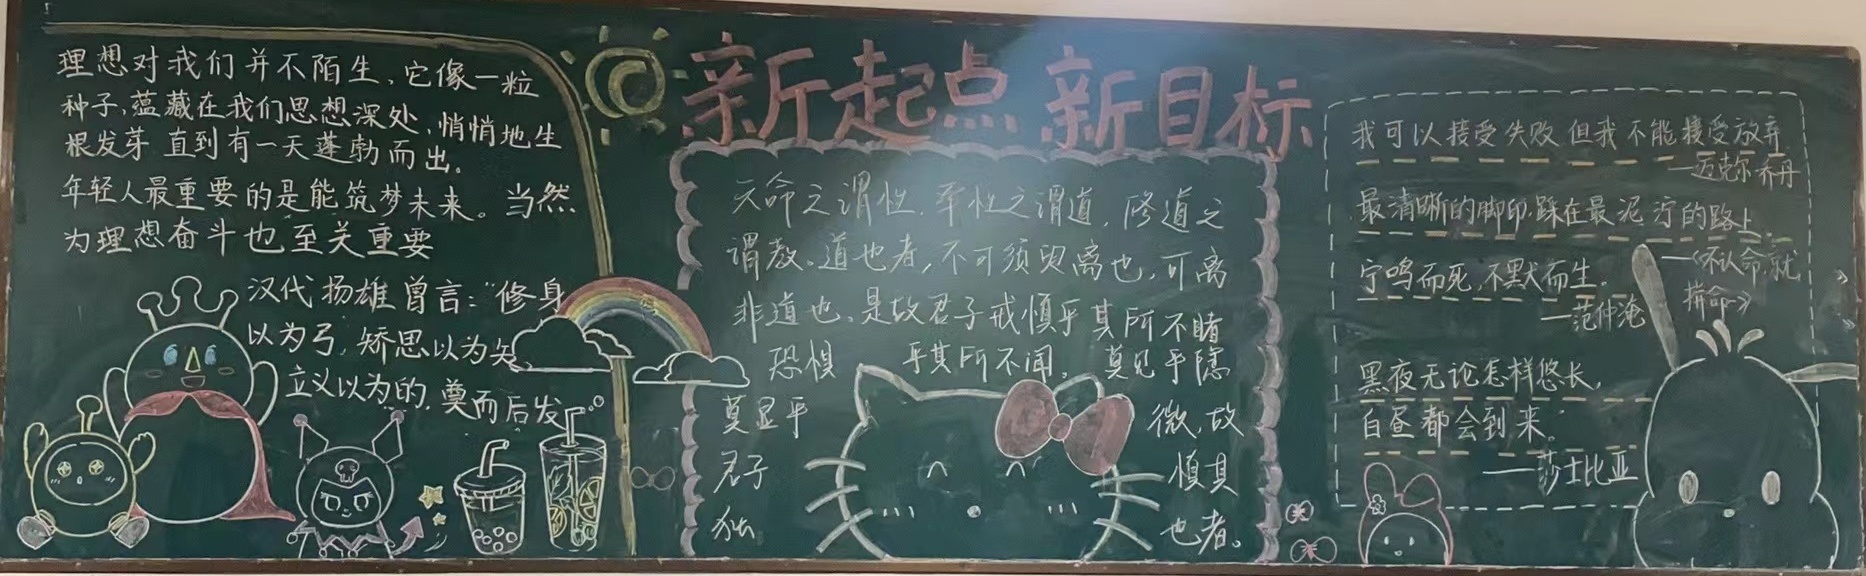 理想对我们并不陌生,它像一粒
种子,蕴藏在我们思想深处,悄悄地生
根发芽 直到有一天蓬勃而出。
年轻人最重要的是能筑梦未来。当然
为理想奋斗也至关重要
汉代扬雄曾言:“修身
以为弓,矫思以为矢
立义以为的,奠而后发”
新起点 新目标
天命之谓性,率性之谓道,修道之
谓教。道也者,不可须臾离也,可离
非道也,是故君子戒慎乎其所不睹
恐惧 乎其所不闻。莫见乎隐
莫显乎 微,故
君子 慎其
独 也者。
我可以接受失败 但我不能接受放弃
——迈克尔·乔丹
最清晰的脚印,踩在最泥泞的路上。
——《不认命,就
拼命》
宁鸣而死,不默而生。
——范仲淹
黑夜无论怎样悠长,
白昼都会到来。
——莎士比亚